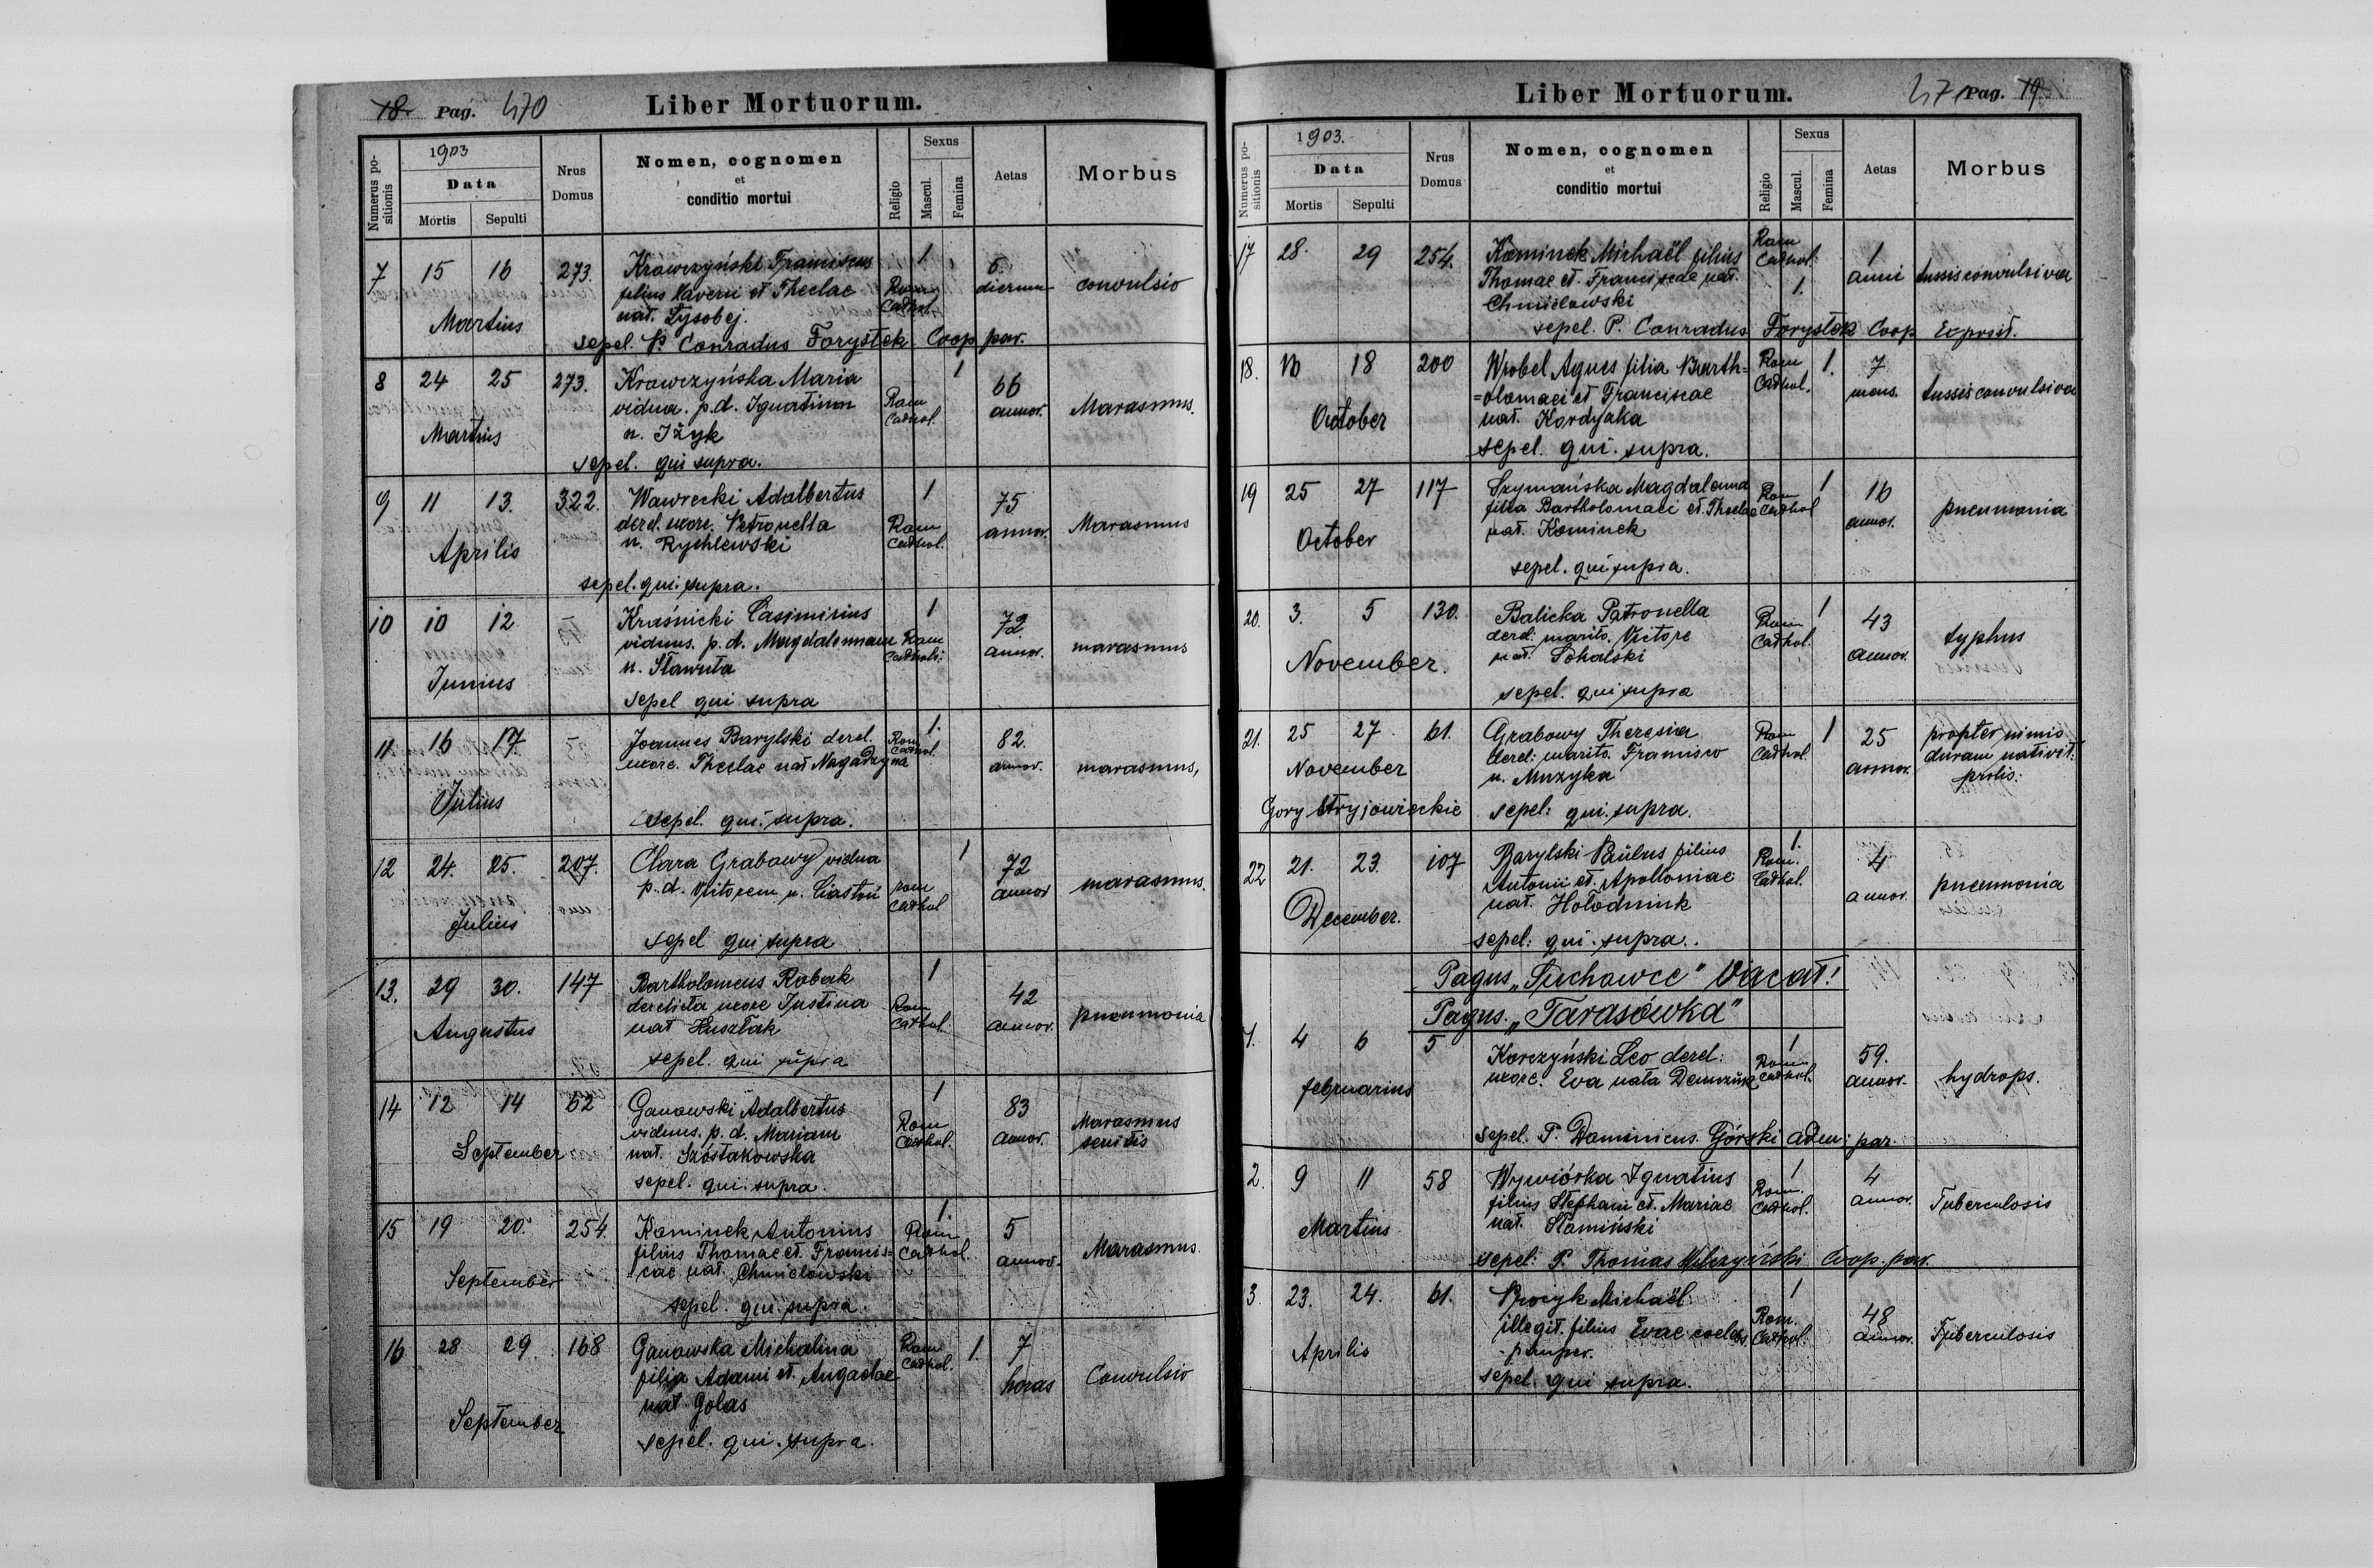 18. Pag. 470 Liber Mortuorum.
Numerus positionis
1903
Data
Mortis Sepulti
Nrus Domus
Nomen, cognomen
et
conditio mortui
Religio
Sexus
Mascul. Femina
Aetas
Morbus
7 15 16 273. Krowczyński Franciscus 1. 6. dierum convulsio
filius Xaverii et Theclae Rom Cathol.
Martius nat. Łysobej.
sepel. P. Conradus Forystek Coop par.
8 24 25 273. Krowczyńska Maria 1 66 annor. Marasmus.
vidua. p.d. Ignatium Rom Cathol.
Martius n. Iżyk
sepel. qui supra.
9 11 13. 322. Wawrecki Adalbertus 1 75 annor. Marasmus
derel. uxore. Petronella Rom Cathol.
Aprilis n. Rychlewski
sepel. qui. supra.
10 10 12. Kraśnicki Casimirius 1 72. annor. marasmus
viduus. p. d. Magdalennam Rom Catholi:
Junius n. Sławuta
sepel qui supra
11 16 17. Joannes Barylski derel. Rom Cathol. 1. 82. annor. marasmus,
uxore. Theclae nat Nagadzyna
Julius
sepel. qui. supra.
12 24. 25. 207. Clara Grabowy vidua 1 72 annor marasmus.
p.d. Vitorem n. Ciastoń rom cathol
Julius
sepel qui supra
13. 29 30. 147 Bartholomeus Robak 1 42 annor. pneumonia
derelicta uxore Justina Rom Cathol.
Augustus nat Huszlak
sepel. qui supra
14 12 14 62 Ganowski Adalbertus 1 83 annor. Marasmus senilis
viduus. p. d. Mariam Rom Cathol.
September nat. Szóstakowska
sepel. qui. supra.
15 19 20. 254. Kominek Antonius 1. Rom Cathol. 5 annor. Marasmus.
filius Thomae et. Francis=
cae nat. Chmielowski
September
sepel. qui. supra.
16 28 29. 168 Ganowska Michalina Rom Cathol. 1. 7 horas Convulsio
filia Adami et. Angaelae
nat. Golas
September
sepel. qui. supra.
Liber Mortuorum. 471 Pag. 19
Numerus positionis
1903.
Data
Mortis Sepulti
Nrus Domus
Nomen, cognomen
et
conditio mortui
Religio
Sexus
Mascul. Femina
Aetas
Morbus
17 28. 29 254. Kominek Michaël filius Rom Cathol. 1. 1 anni tussis convulsiva
Thomae et. Franciscae nat.
Chmielowski
sepel. P. Conradus Forystek Coop Exposit.
18. 18 200 Wrobel Agnes filia Barth= Rom Cathol. 1. 7 mens. tussis convulsiva
=olomaei et Franciscae
October nat. Kordyaka
sepel. qui. supra.
19 25 27 117 Szymańska Magdalenna 1 16 annor. pneumonia
filia Bartholomaei et. Theclae Rom Cathol
October nat. Kominek
sepel. qui supra.
20. 3. 5 130. Balicka Petronella 1 43 annor. typhus
derel: marito. Victore Rom Cathol.
November. nat. Sokalski
sepel. qui supra
21. 25 27. 61. Grabowy Theresia Rom Cathol. 1 25 annor. propter nimis
November derel: marito. Francisco duram nativit.
n. Muzyka prolis:
Gory Stryjowieckie sepel: qui. supra.
22 21. 23. 107 Barylski Paulus filius 1. 4 annor. pneumonia
Antonii et. Apolloniae Rom. Cathol.
December. nat. Hołodniuk
sepel: qui. supra.
Pagus „Suchowce” Vacat!
Pagus. „Tarasówka”
1. 4 6 5 Korczyński Leo derel: 1 59. annor. hydrops.
uxore. Eva nata Rom Cathol.
februarius
sepel. P. Dominicus. Górski adm: par.
2. 9 11 58 Wywiórka Ignatius 1 4 annor. Tuberculosis
filius Stephani et. Mariae Rom. Cathol.
Martius nat. Słomiński
sepel: P. Thomas Wilczyński Coop. par.
3. 23. 24. 61. Procyk Michaël 1 48 annor. Tuberculosis
illegit. filius Evae coelebs Rom. Cathol.
Aprilis - pauper.
sepel. qui supra.